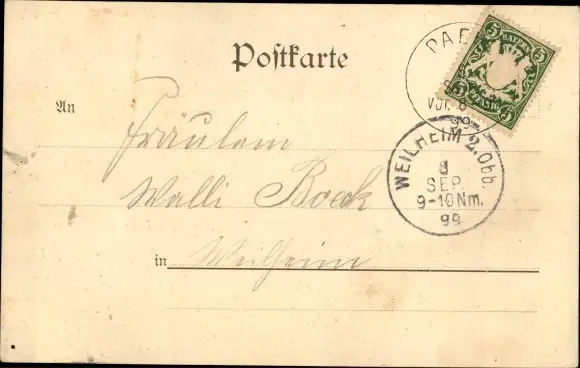 Postkarte
BAYERN
5 5
5 5
PFENNIG
PAE
VOR. 8
99
An Fräulein
Walli Boeck
in Weilheim
WEILHEIM 2. Obb.
8
SEP.
9-10 Nm.
99